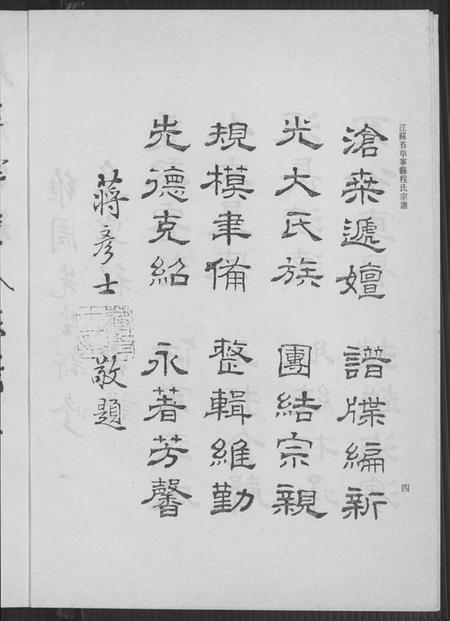 江蘇省阜寧縣程氏宗譜
四
滄桒遞嬗 譜牒編新
光大氏族 團結宗親
規模聿備 整輯維勤
先德克紹 永著芳馨
蔣彥士 敬題